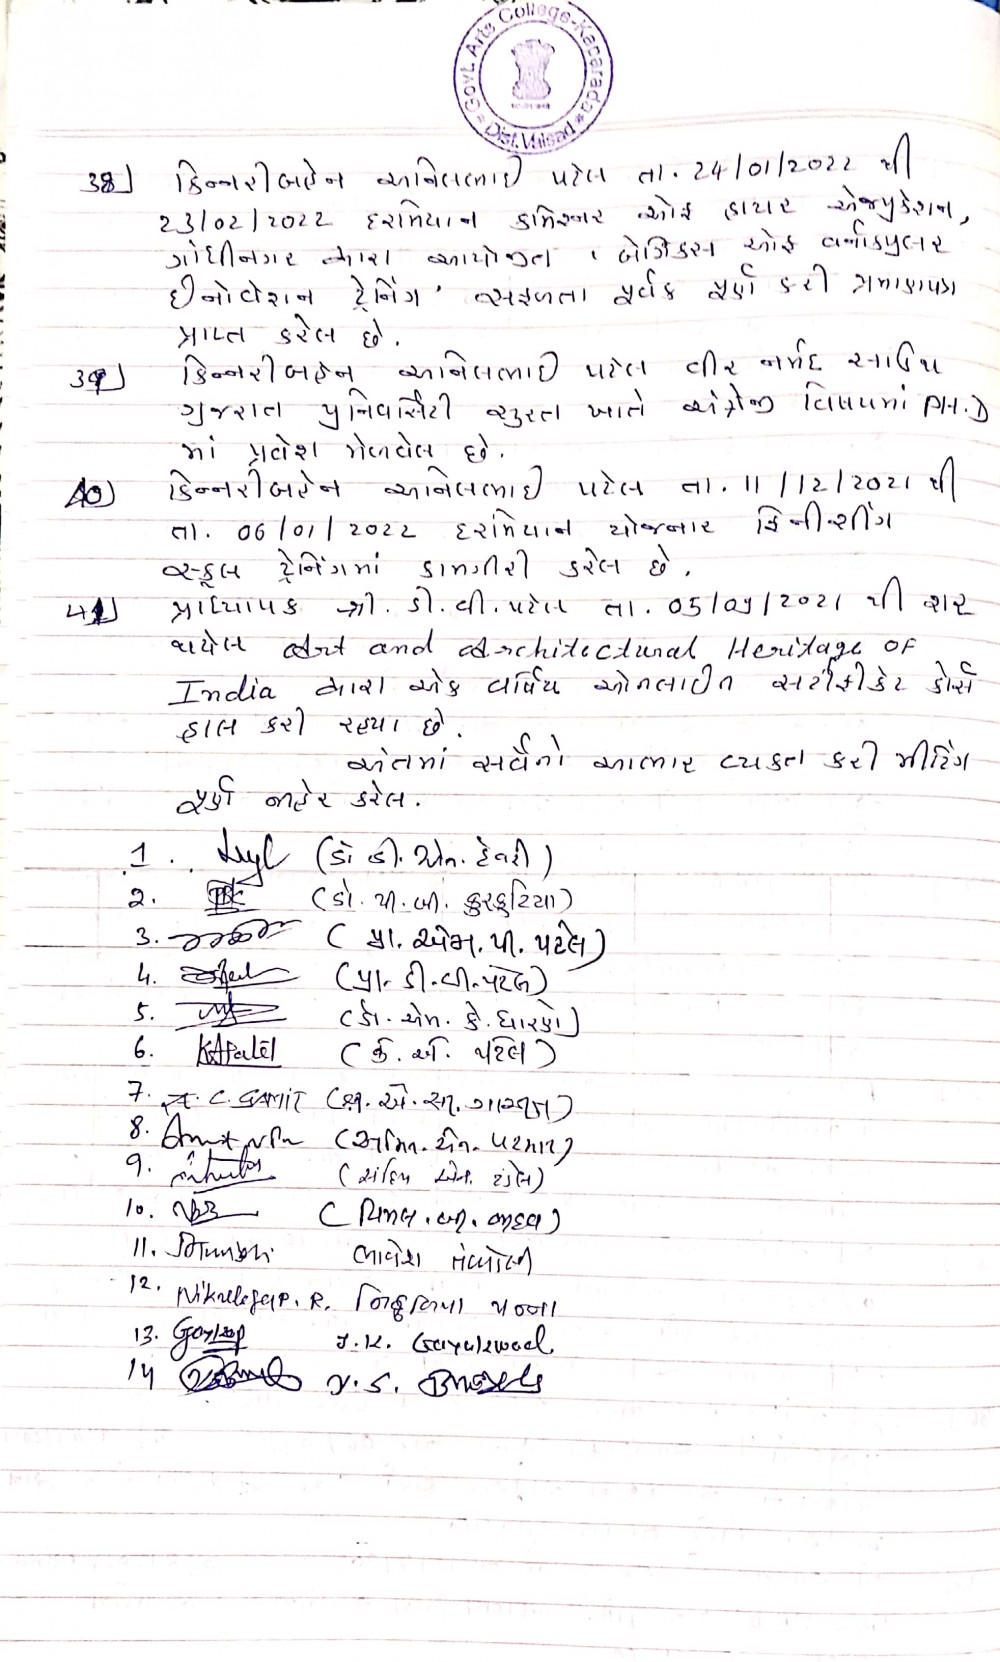 Govt. Arts College-Kaparada
Dist. Valsad
38) કિન્નરીબહેન અનિલભાઈ પટેલ તા. 24/01/2022 થી
23/02/2022 દરમિયાન કમિશ્નર ઓફ હાયર એજ્યુકેશન,
ગાંધીનગર દ્વારા આયોજીત ' બેઝિકસ ઓફ વર્નાક્યુલર
ઈનોવેશન ટ્રેનિંગ ' સફળતા પૂર્વક પૂર્ણ કરી પ્રમાણપત્ર
પ્રાપ્ત કરેલ છે.
39) કિન્નરીબહેન અનિલભાઈ પટેલ વીર નર્મદ સાઉથ
ગુજરાત યુનિવર્સિટી સુરત ખાતે અંગ્રેજી વિષયમાં PH.D
માં પ્રવેશ મેળવેલ છે.
40) કિન્નરીબહેન અનિલભાઈ પટેલ તા. 11/12/2021 થી
તા. 06/01/2022 દરમિયાન યોજનાર ફિનીશીંગ
સ્કૂલ ટ્રેનિંગમાં કામગીરી કરેલ છે.
41) પ્રાધ્યાપક શ્રી. ડી. વી. પટેલ તા. 05/09/2021 થી શરૂ
થયેલ Art and Architectural Heritage OF
India દ્વારા એક વર્ષિય ઓનલાઈન સર્ટીફીકેટ કોર્સ
હાલ કરી રહ્યા છે.
અંતમાં સર્વેનો આભાર વ્યકત કરી મીટિંગ
પૂર્ણ જાહેર કરેલ.
1. (ડૉ ડી. એન. દેવરી)
2. (ડૉ. પી. બી. કુરકુટિયા)
3. (પ્રા. એમ. પી. પટેલ)
4. (પ્રા. ડી. વી. પટેલ)
5. (ડૉ. એન. કે. ઘારણે)
6. KAPatel (કે. એ. પટેલ)
7. C. GAMIT
8. (અમિત. એન. પરમાર)
9.
10.
11. ભાવેશ
12. P. R.
13. J. K. Gayakwad
14 Y. S.